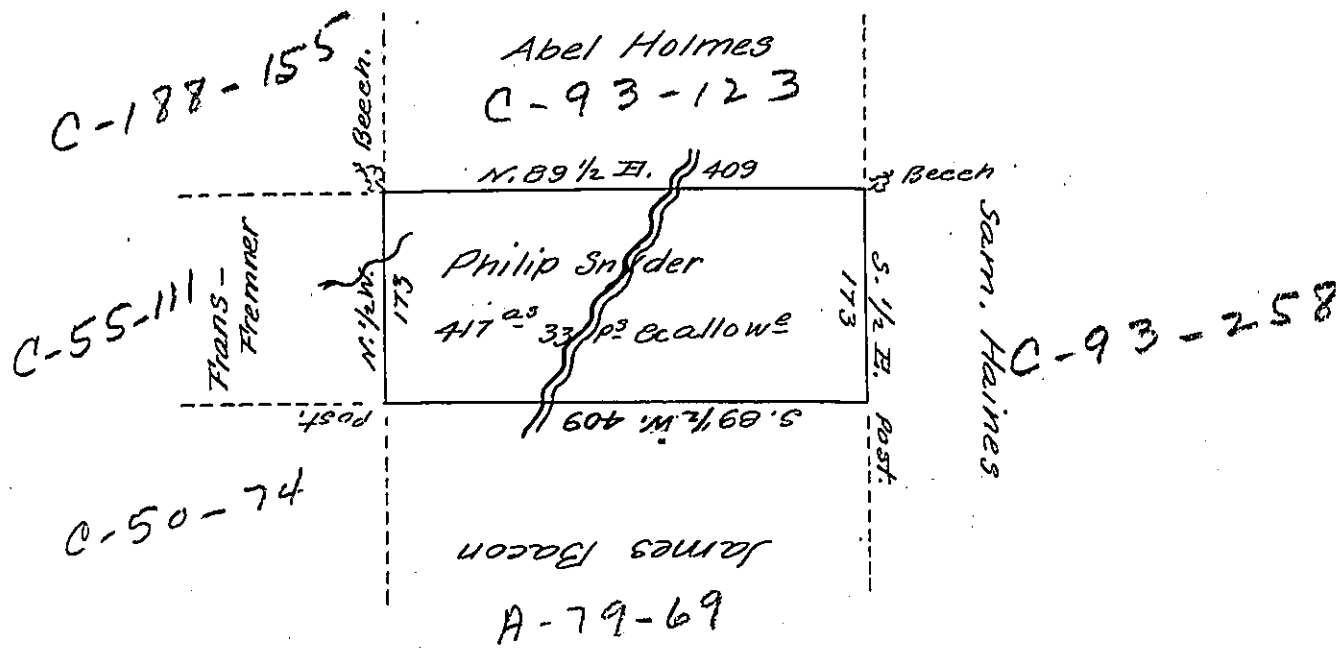 C-188-155
Beech.
Abel Holmes
C-93-123
N. 89 1/2 E. 409
Beech
C-55-111
Frans-
Fremner
N. 1/2 W.
173
Philip Snyder
417 as 33 ps & allowe
S. 1/2 E.
173
Sam. Haines
C-93-258
Post.
S. 89 1/2 W. 409
Post.
C-50-74
James Bacon
A-79-69